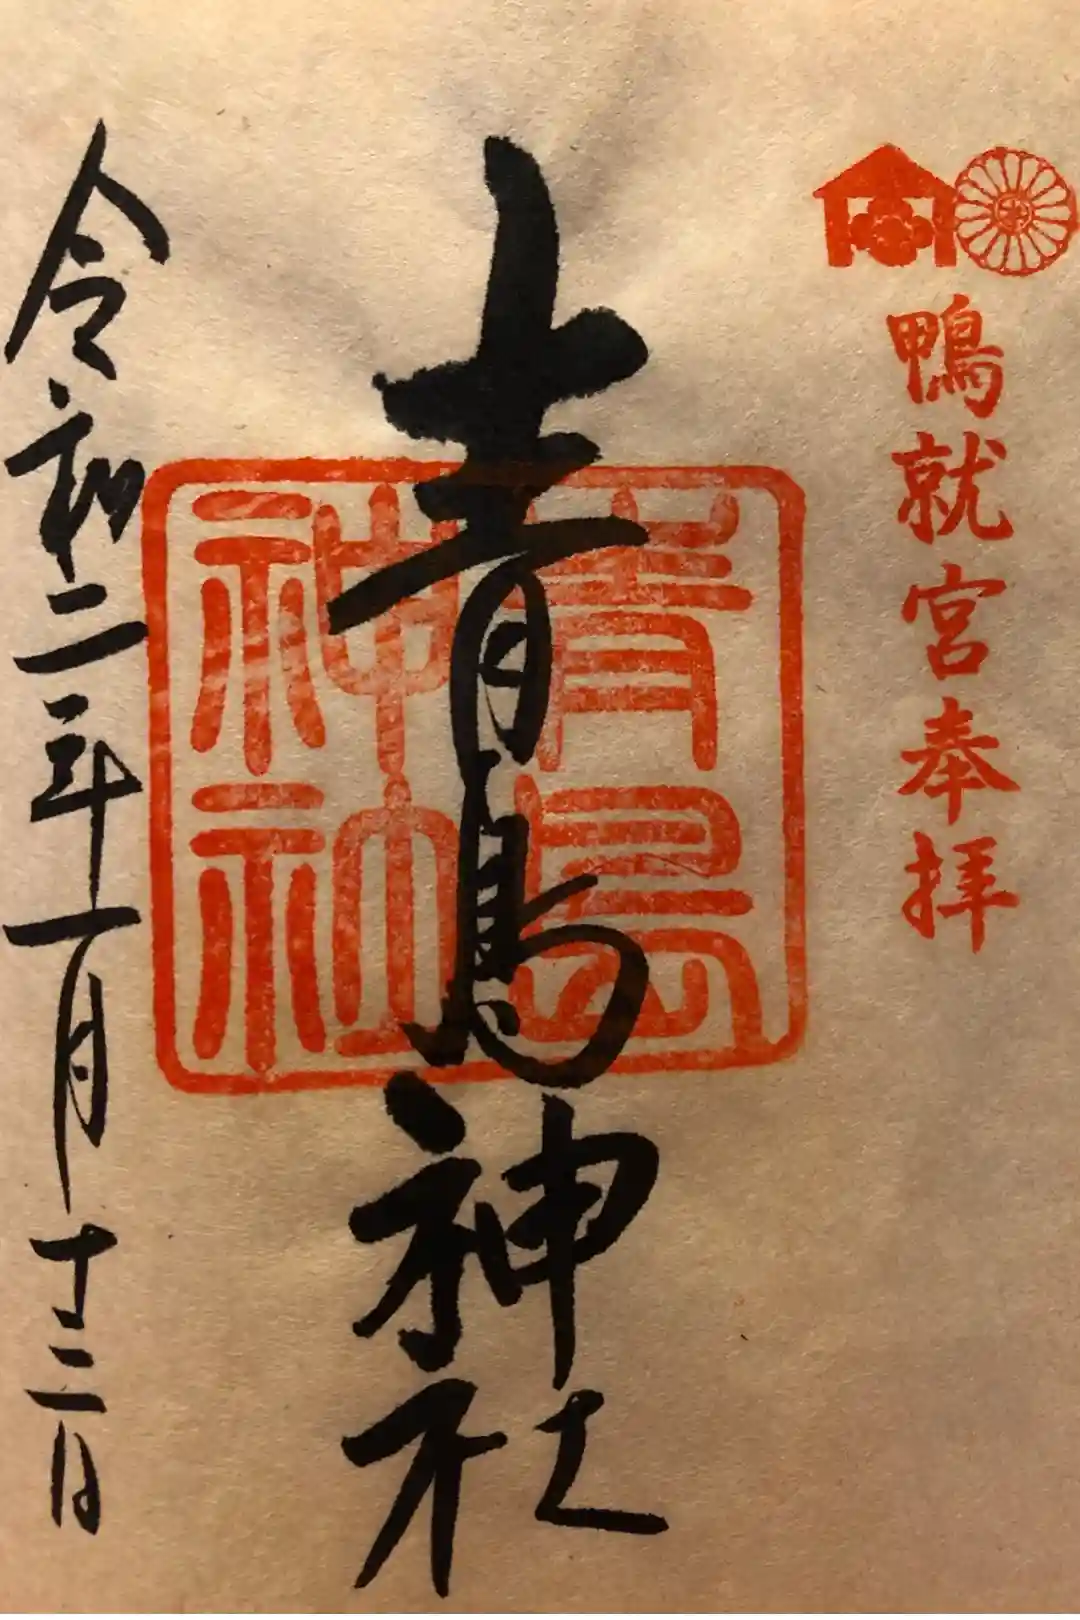 鴨就宮奉拝
青島神社
青島神社
令和二年十一月十三日